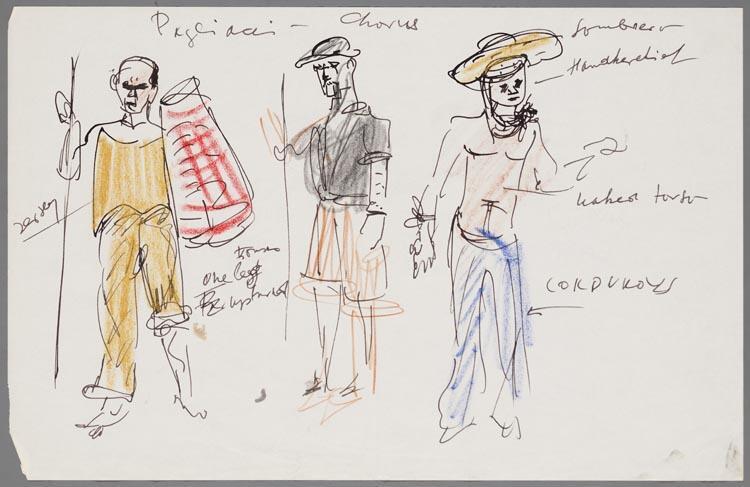 Pagliacci - Chorus
Sombrero
Handkerchief
Naked torso
jersey
one leg
CORDUROYS